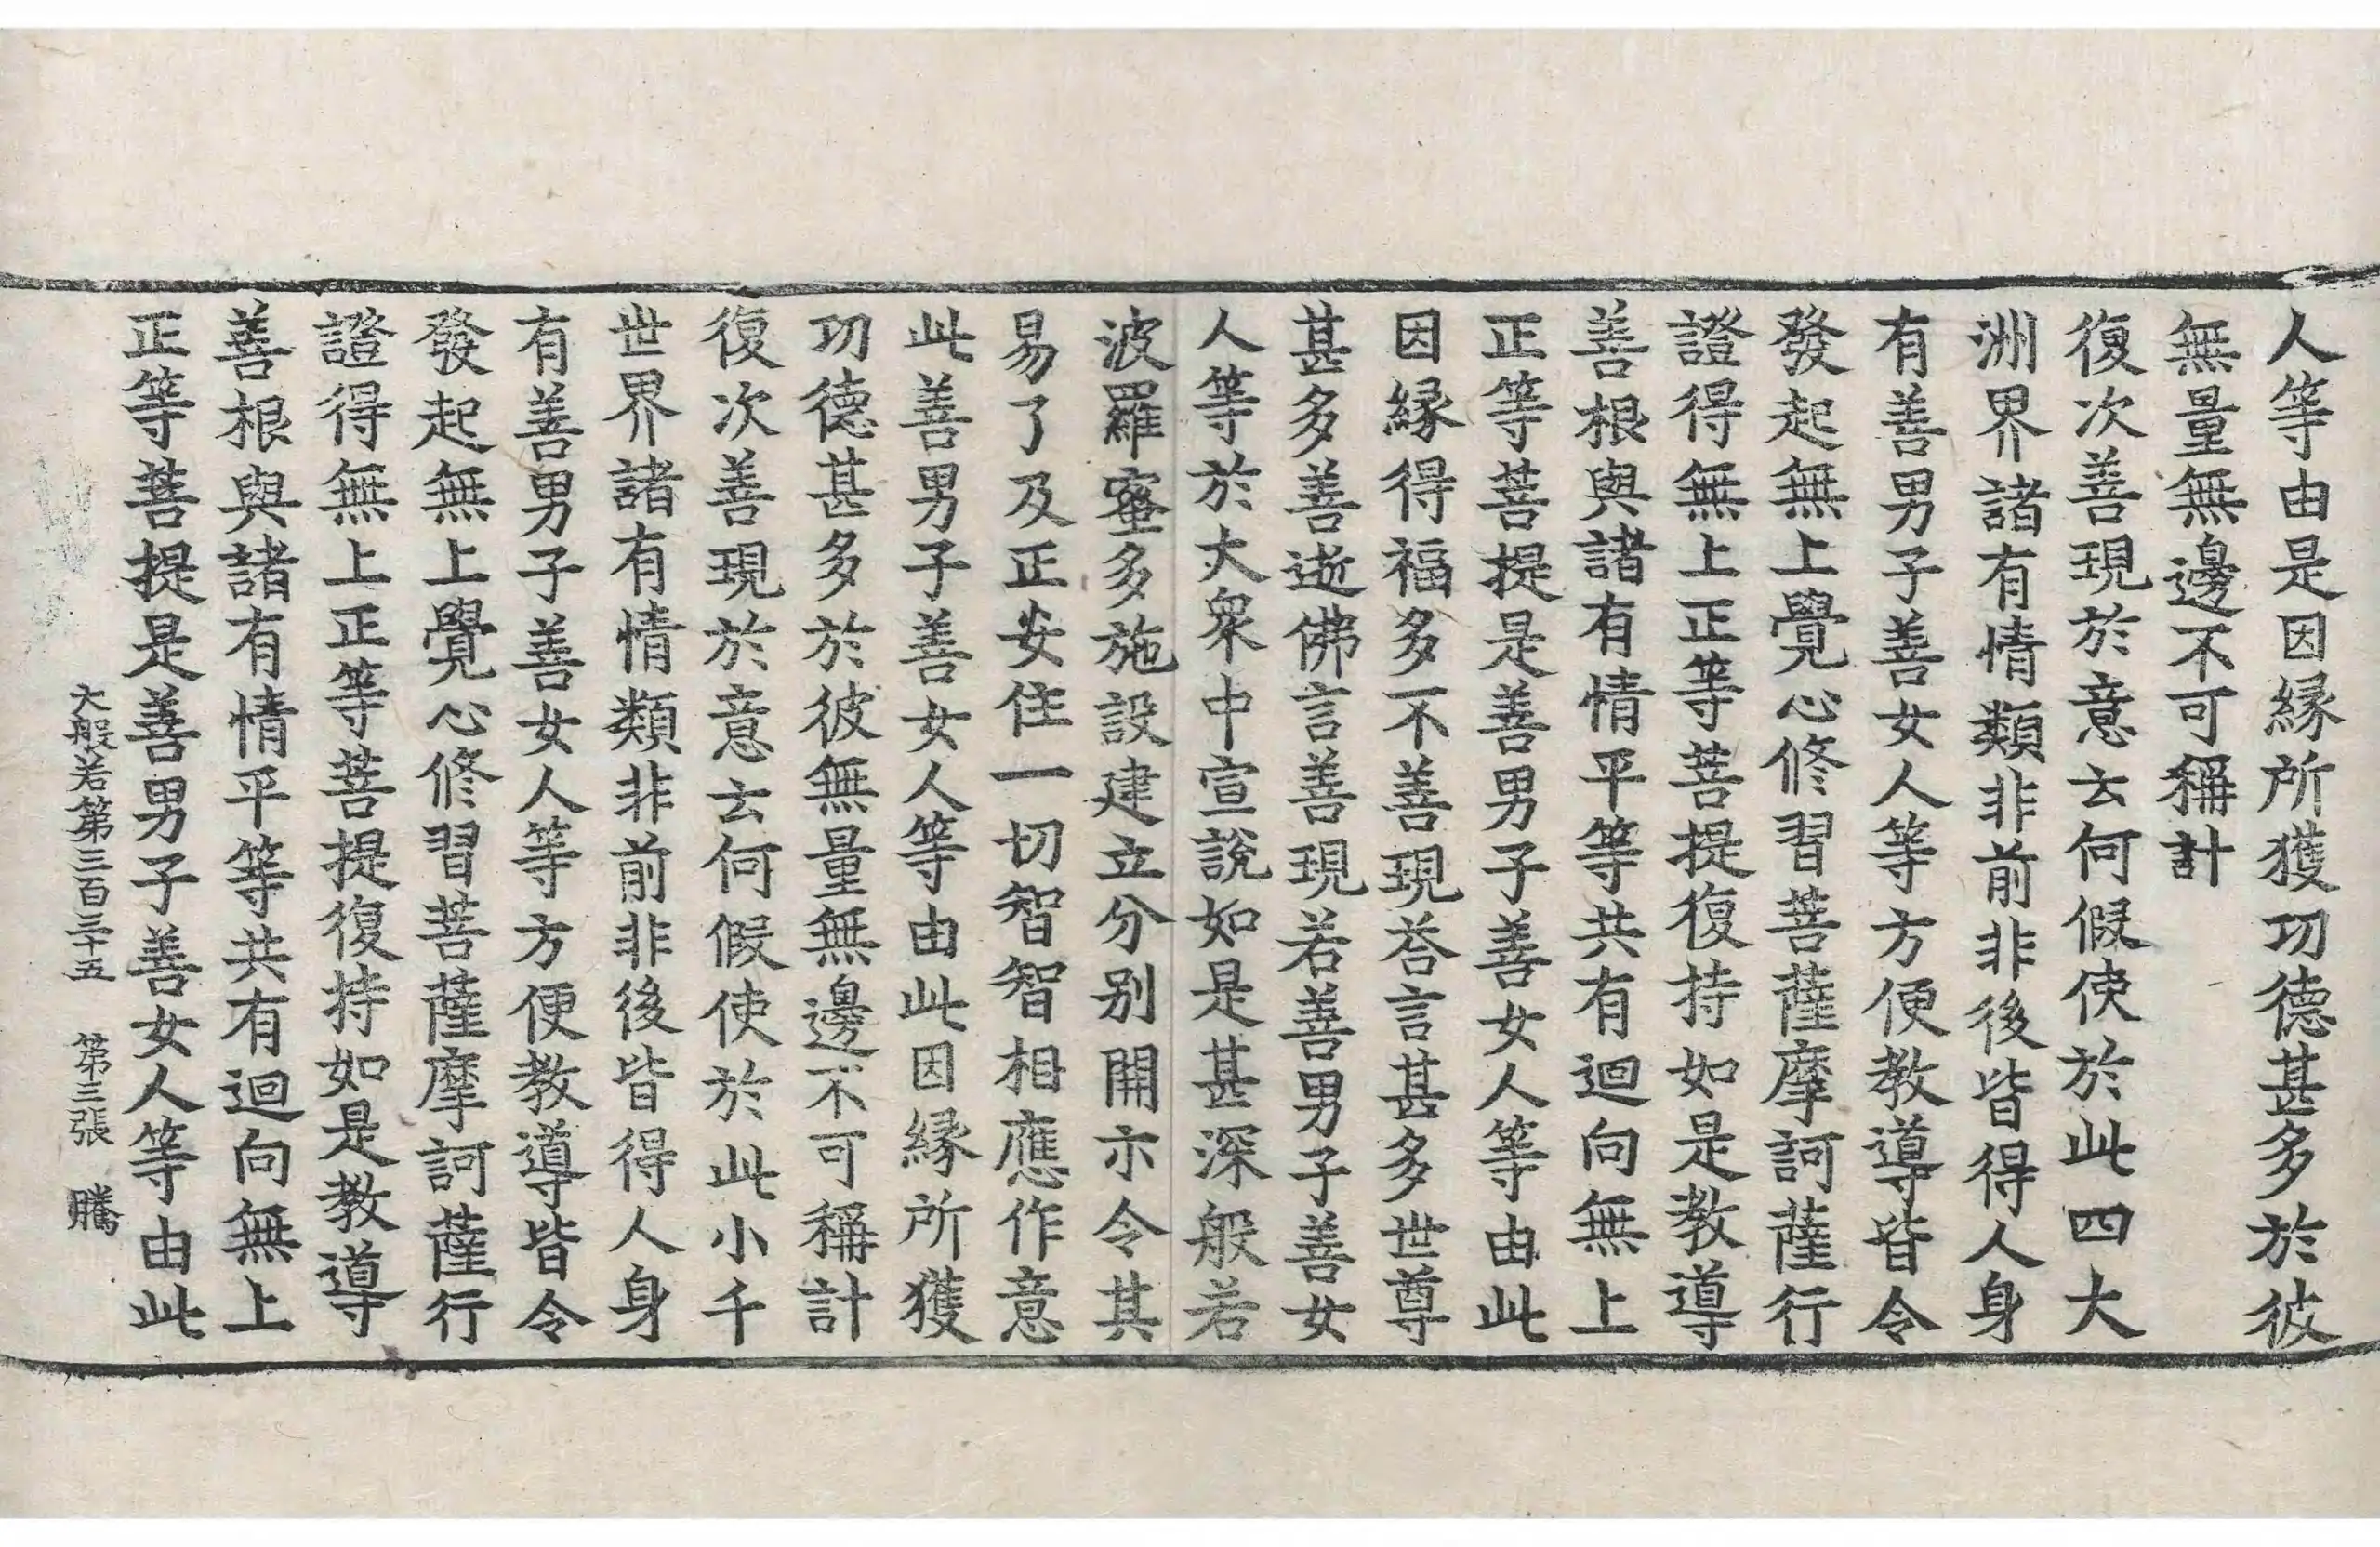 人等由是因縁所獲功德甚多於彼
無量無邊不可稱計
復次善現於意云何假使於此四大
洲界諸有情類非前非後皆得人身
有善男子善女人等方便教導皆令
發起無上覺心修習菩薩摩訶薩行
證得無上正等菩提復持如是教導
善根與諸有情平等共有迴向無上
正等菩提是善男子善女人等由此
因縁得福多不善現荅言甚多世尊
甚多善逝佛言善現若善男子善女
人等於大衆中宣說如是甚深般若
波羅蜜多施設建立分別開示令其
易了及正安住一切智智相應作意
此善男子善女人等由此因縁所獲
功德甚多於彼無量無邊不可稱計
復次善現於意云何假使於此小千
世界諸有情類非前非後皆得人身
有善男子善女人等方便教導皆令
發起無上覺心修習菩薩摩訶薩行
證得無上正等菩提復持如是教導
善根與諸有情平等共有迴向無上
正等菩提是善男子善女人等由此
大般若第三百三十五 第三張 騰